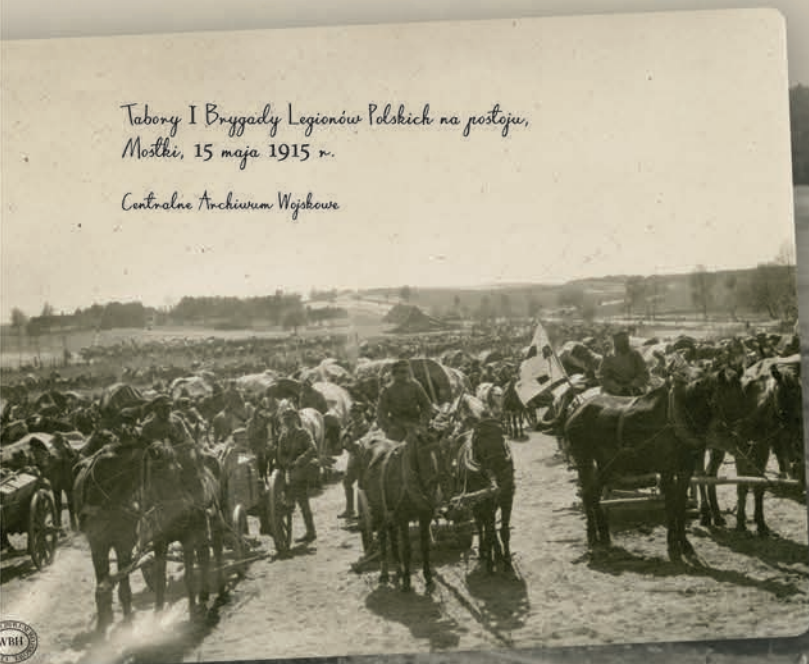 Tabory I Brygady Legionów Polskich na postoju,
Mostki, 15 maja 1915 r.
Centralne Archiwum Wojskowe
WBH